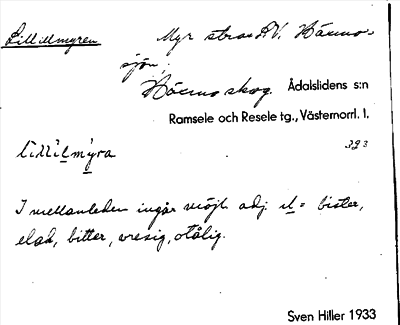 Lill Illmyren
Myr strax S.V. Härmo-
sjön;
Härmo skog Ådalslidens s:n
Ramsele och Resele tg., Västernorrl. l.
323
I mellanleden ingår möjl. adj. il = bister,
elak, bitter, vresig, otålig.
Sven Hiller 1933